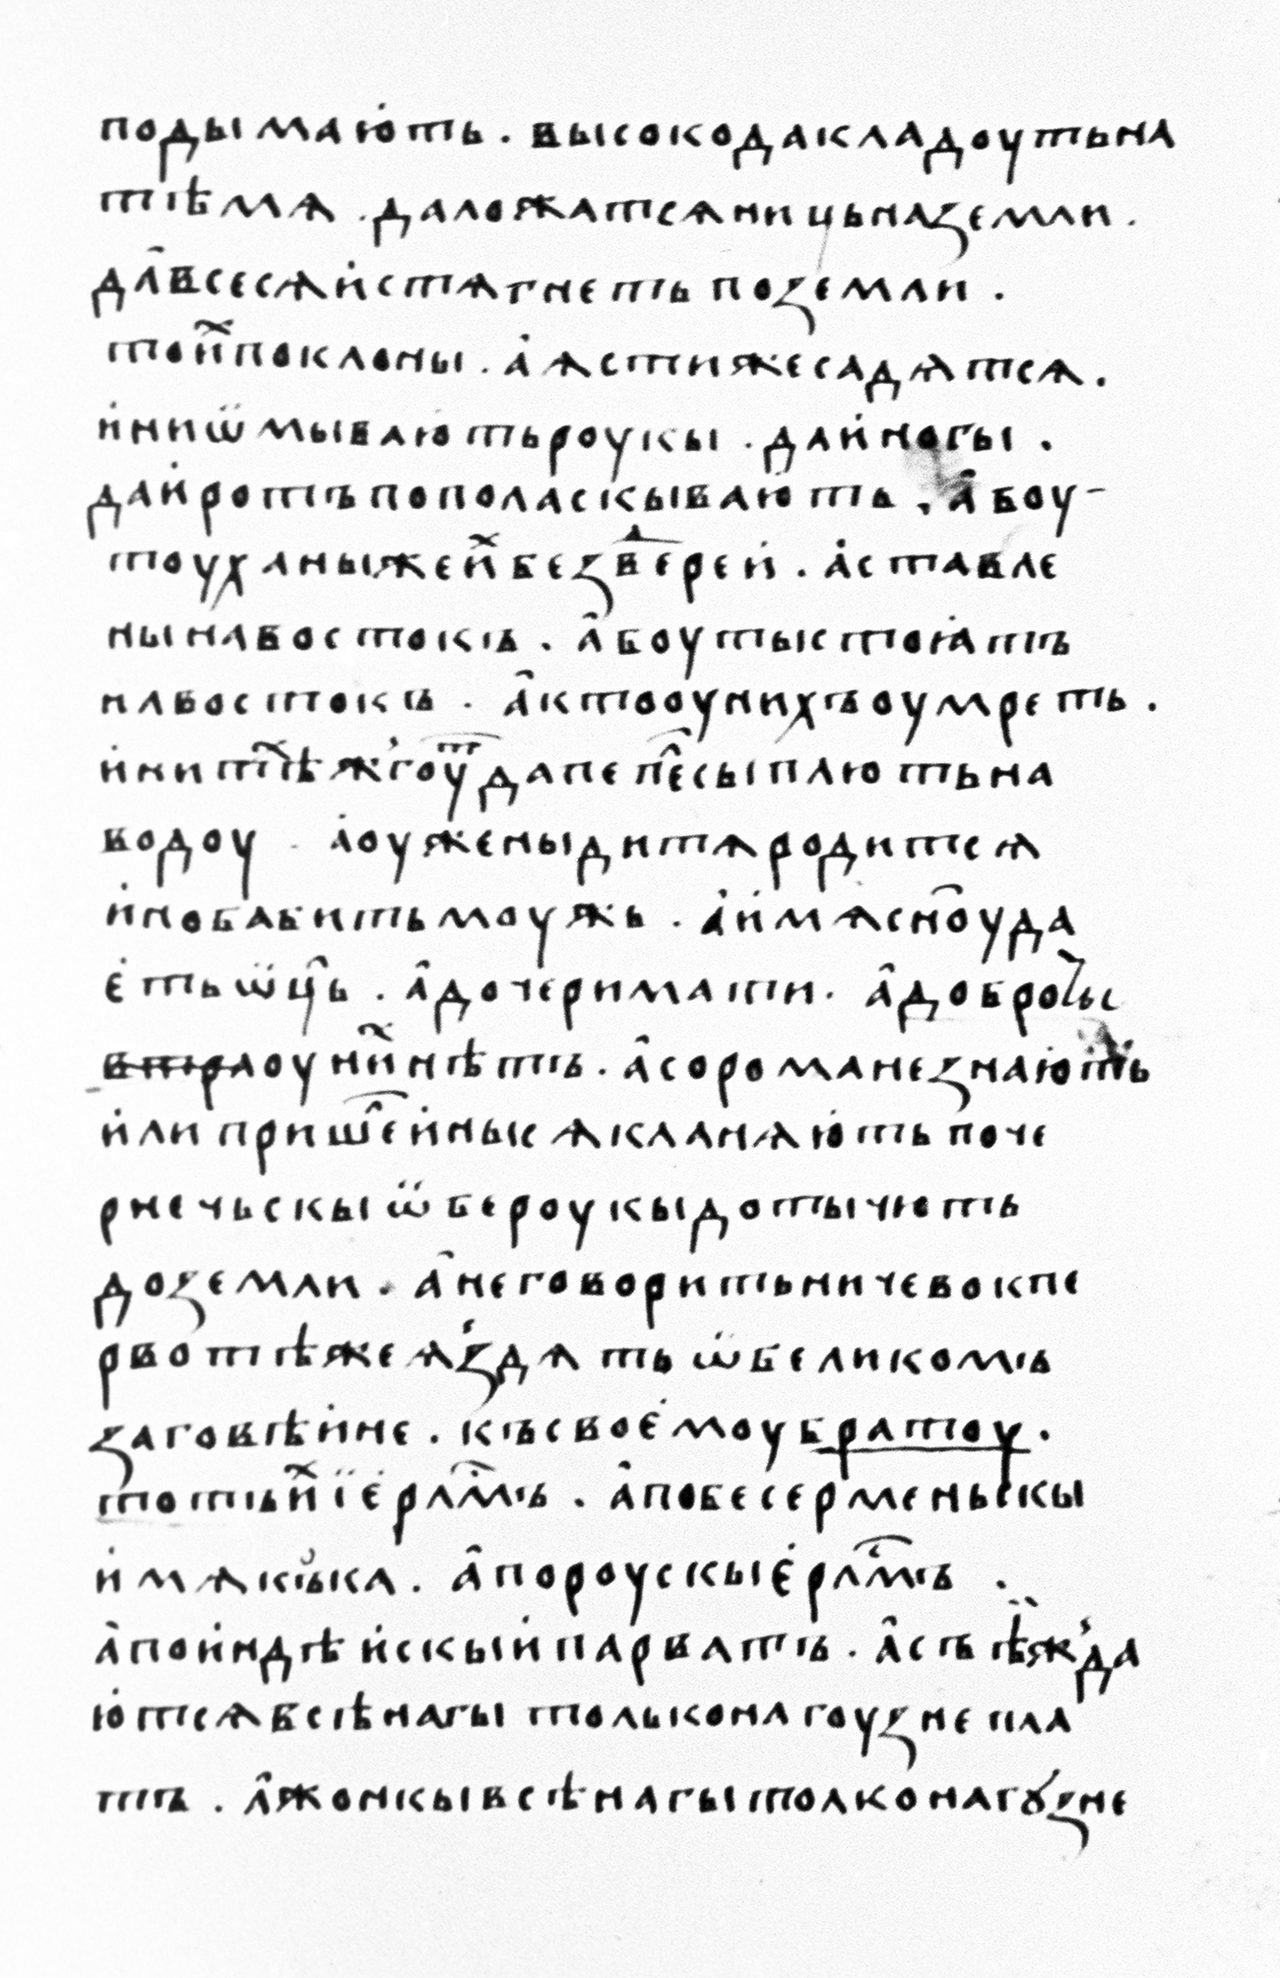 подымають . высокодакладоутьна
тѣмя . даложатсяницьназемли .
дав̑сесѧи҆стягнетьпоземли .
тои҃поклоны . а҆ястижесадятся .
и҆ниѿмываютьроукы . даи҆ногы .
даи҆ротъпополаскывають . а҆боу-
тоуханыжеи҃безв҇ерей . а҆ставле
нынавостокъ . а҆боутыстоꙗтъ
навостокъ . а҆ктооунихъоумреть .
и҆нитѣхжгоутдапепелсыплютьна
водоу . а҆оуженыдитяродится
и҆нобабитьмоужь . а҆имясноуда
е҆тьѿц҃ь . а҆дочеримати . а҆доброты
втраоуни҃нѣтъ . а҆сороманезнають
и҆липришеи҆ныскланяютьпоче
рнечьскыѡбероукыдотычють
доземли . а҆неговоритьничевокпе
рвотѣжеяздятьѡвеликомъ
заговѣине . късвоемоубратоу .
тотьи҃іе҆рл҃мъ . а҆побесерменьскы
и҆мякъка . а҆пороускые҆рл҃мъ .
а҆поиндѣи҆скыипарватъ . а҆съѣждa
ютсявсѣнагытольконагоузнепла
тъ . а҆жонкывсѣнагытолконагꙋзне